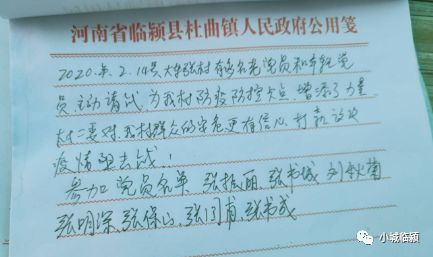 河南省临颍县杜曲镇人民政府公用笺
2020年.2.14号,大张村有多名老党员和年轻党
员主动请试,为我村防疫防控卡点,增添了力量
对我村群众的安危更有信心打赢这次
疫情阻击战!
参加党员名单,张书城 刘秋菊
张明深,张保山、张书成
小城临颍